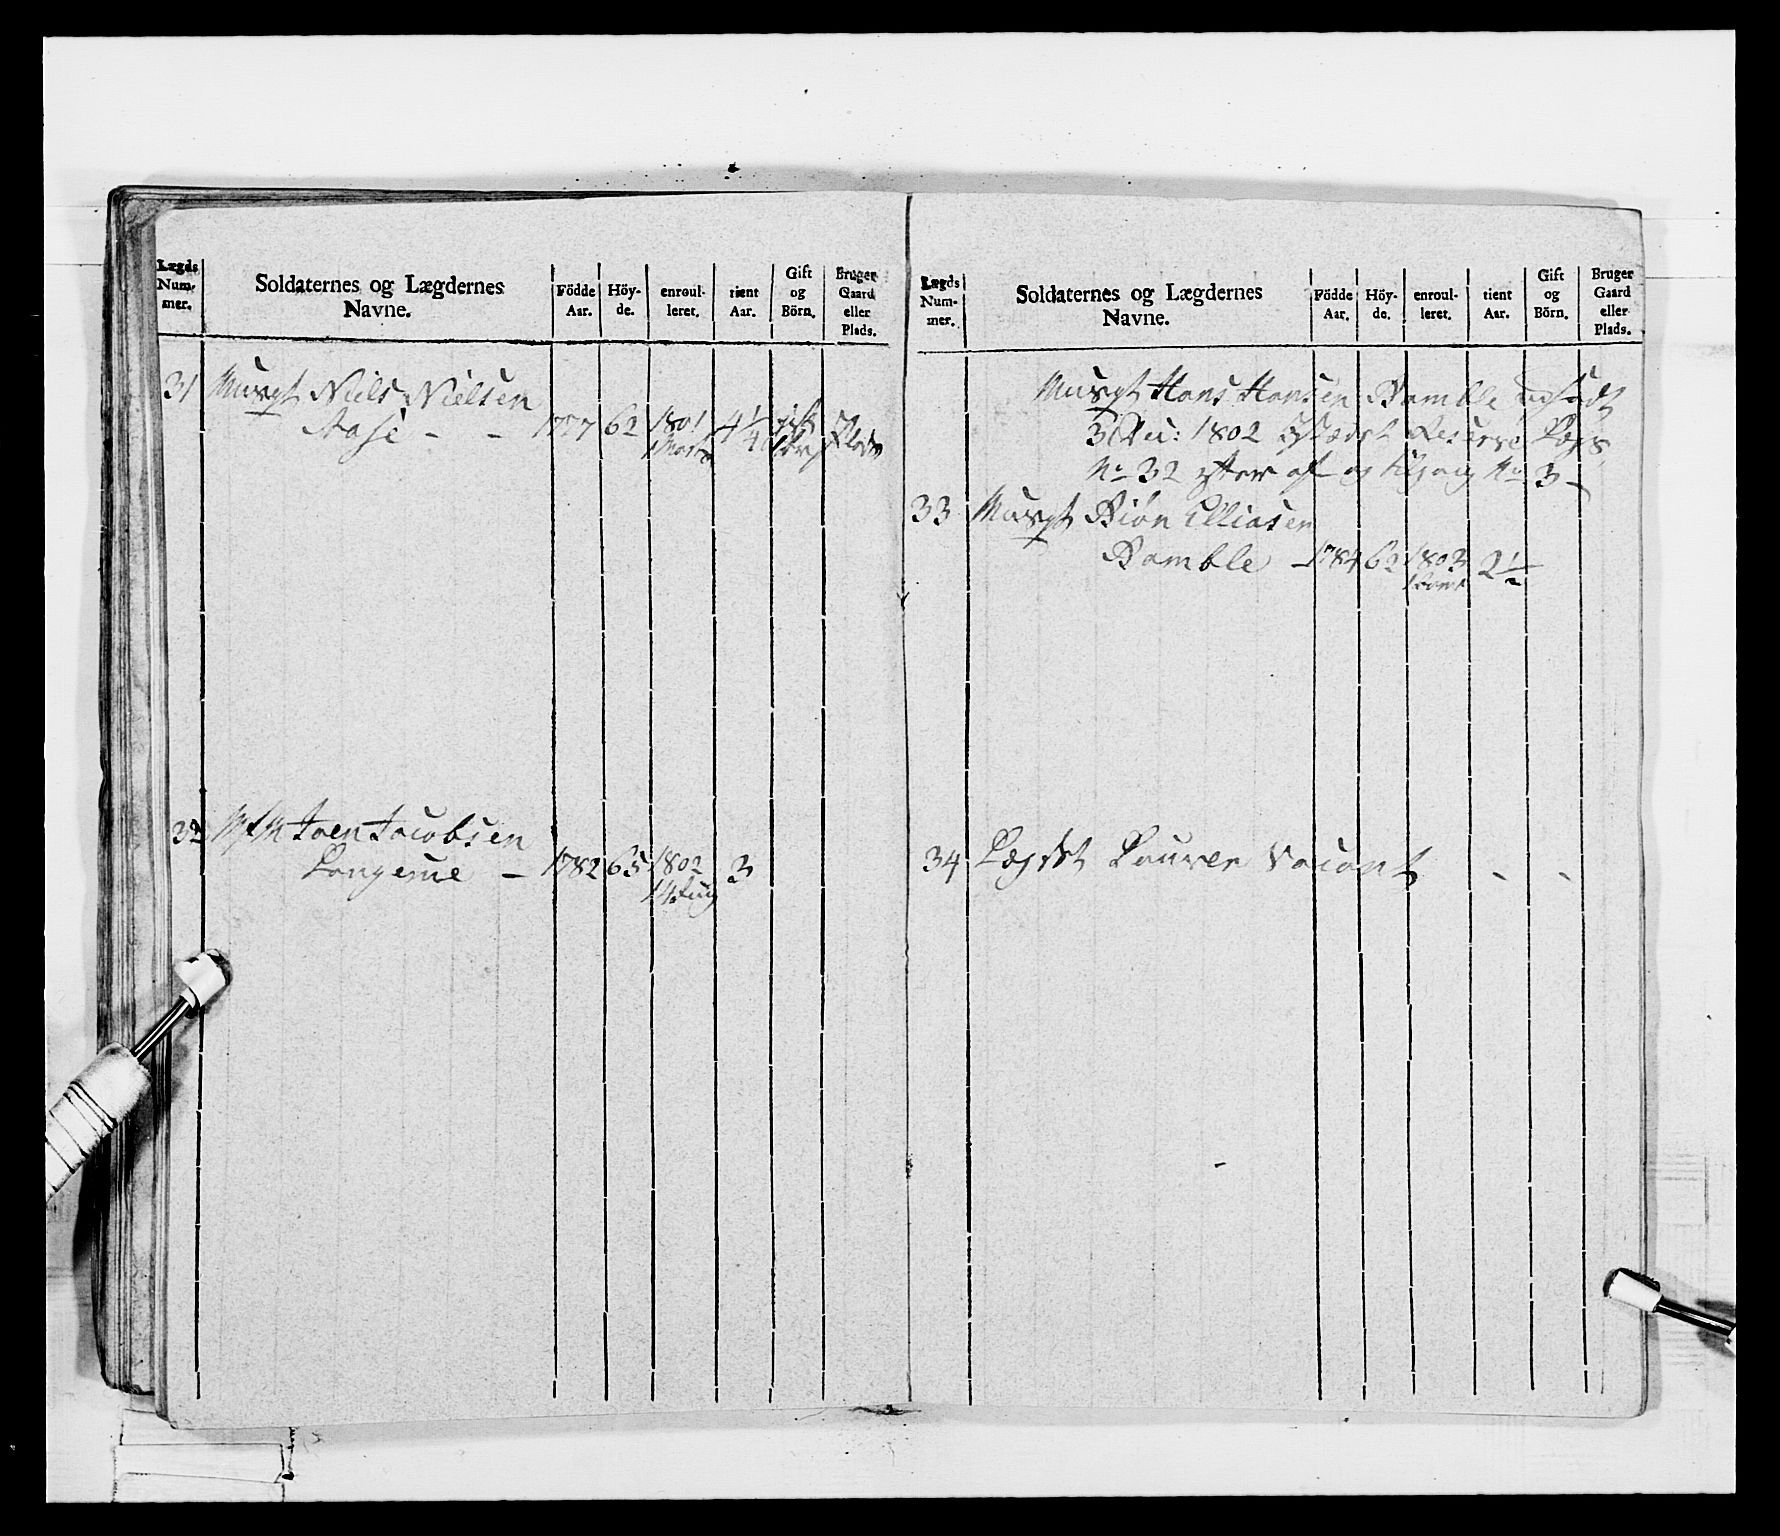 Lægds Num- mer.
Soldaternes og Lægdernes Navne.
Födde Aar.
Höy- de.
enroul- leret.
tient Aar.
Gift og Börn.
Bruger Gaard eller Plads.
31 Musqt Niels Nielsen
Aase - - 1777 62 1801 4 1/4 gift Plads
1 Marts
32 Jaen Jacobsen
Langerue - 1782 65 1802 3
14 Aug
Lægds Num- mer.
Soldaternes og Lægdernes Navne.
Födde Aar.
Höy- de.
enroul- leret.
tient Aar.
Gift og Börn.
Bruger Gaard eller Plads.
Musqt Hans Hansen Bamble
3 1802 Reserve Lægd
No 32 efter af- og tilgang No 3
33 Musqt Biön Elliasen
Bamble - 1784 62 1803 2 1/2
34 Lægdet Lauver Vacant - -